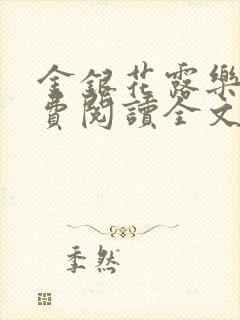 金銀花露樂
費閱讀全文
季然